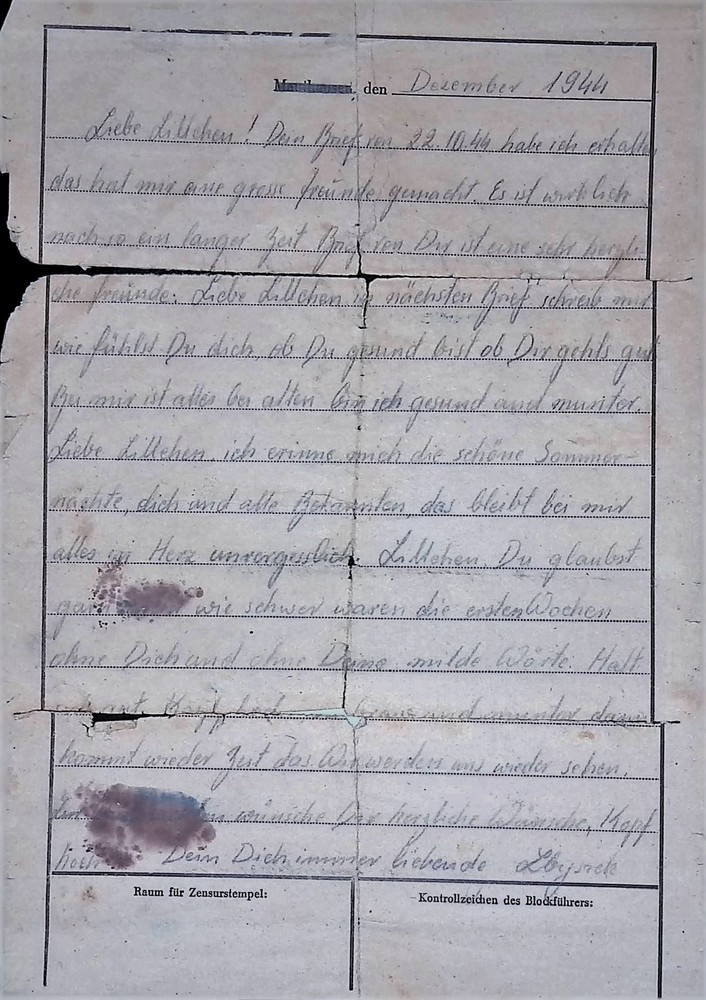 Mauthausen, den Dezember 1944
Liebe Lillchen! Dein Brief von 22.10.44 habe ich erhalten
das hat mir eine grosse freunde gemacht. Es ist wirklich
nach so ein langer Zeit Brief von Dir ist eine sehr herzli-
che freunde. Liebe Lillchen in nächsten Brief schreib mir
wie fühlst Du dich ob Du gesund bist ob Dir gehts gut
Bei mir ist alles bei alten bin ich gesund und munter.
Liebe Lillchen, ich erinne mich die schöne Sommer-
nächte, dich und alle Bekannten, das bleibt bei mir
alles in Herz unvergesslich. Lillchen, Du glaubst
wie schwer waren die ersten Wochen
ohne Dich und ohne Deine milde Wörte. Halt
Kopf hoch brav und munter dann
kommt wieder Zeit das Wir werden uns wieder sehen.
wünsche Dir herzliche Wünsche, Kopf
hoch Dein Dich immer liebende
Raum für Zensurstempel:
Kontrollzeichen des Blockführers: